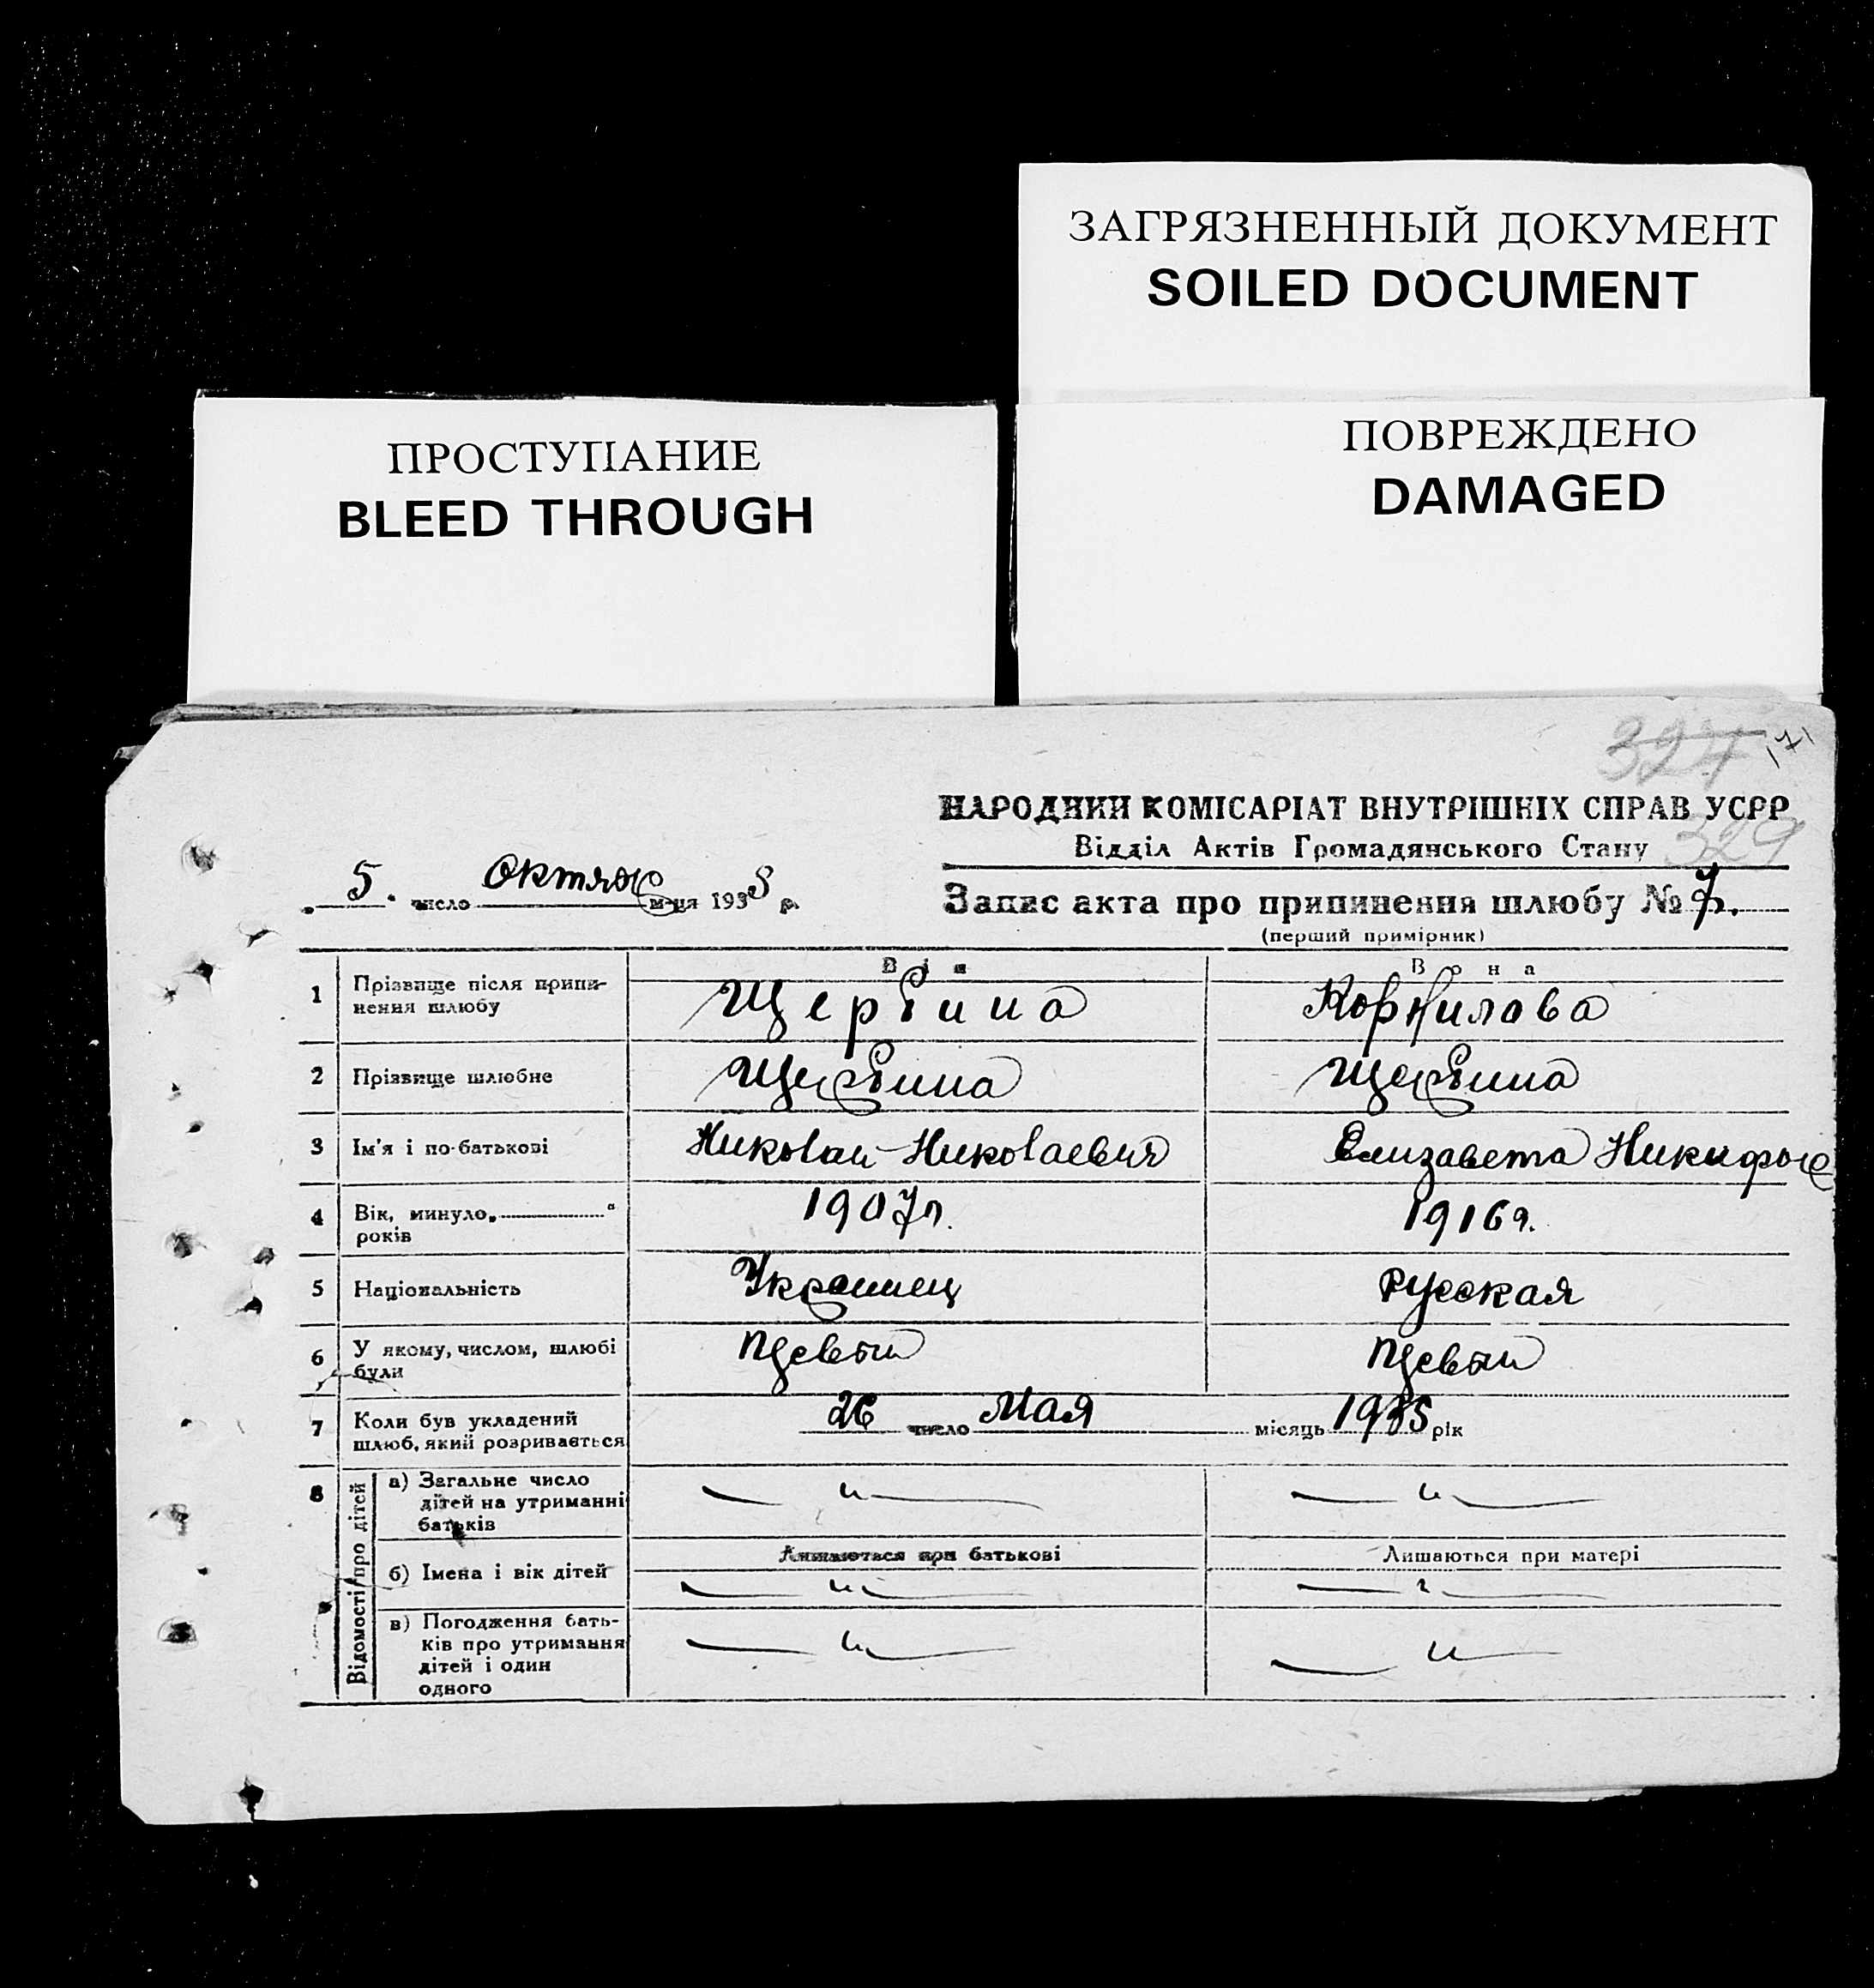 ЗАГРЯЗНЕННЫЙ ДОКУМЕНТ
SOILED DOCUMENT
ПРОСТУПАНИЕ
BLEED THROUGH
ПОВРЕЖДЕНО
DAMAGED
324 171
НАРОДНИЙ КОМІСАРІАТ ВНУТРІШНІХ СПРАВ УСРР
Відділ Актів Громадянського Стану 329
5. число Октябр м-ця 1935 р.
Запис акта про припинення шлюбу № 7.
(перший примірник)
Він Вона
1 Прізвище після припинення шлюбу Щербина Корнилова
2 Прізвище шлюбне Щербина Щербина
3 Ім'я і по-батькові Николай Николаевич Елизавета Никифор
4 Вік, минуло „ “ років 1907г. 1916г.
5 Національність Украинец Русская
6 У якому, числом, шлюбі були Первом Первом
7 Коли був укладений шлюб, який розривається 26 число Мая місяць 1935 рік
8 Відомості про дітей
а) Загальне число дітей на утриманні батьків — „ — — „ —
Лишаються при батькові Лишаються при матері
б) Імена і вік дітей — „ — — „ —
в) Погодження батьків про утримання дітей і один одного — „ — — „ —